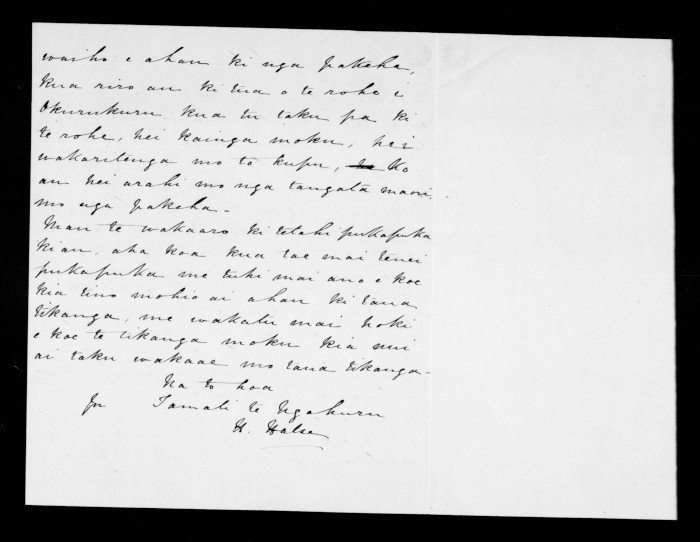 waiho e ahau ki nga pakeha,
kua riro au ki tua o te rohe i
Okurukuru kua tu taku pa ki
te rohe, hei kainga moku, hei
wakaritenga mo to kupu, Ko
au hei arahi mo nga tangata maori,
mo nga pakeha.
Mau te wakaaro ki tetahi pukapuka
kiau, aha koa kua tae mai tenei
pukapuka me tuhi mai ano e koe
kia tino mohio ai ahau ki taua
tikanga, me wakatu mai hoki
e koe te tikanga moku kia nui
ai taku wakaae mo taua tikanga.
Na to hoa
Tamati te Ngahuru
H. Halse